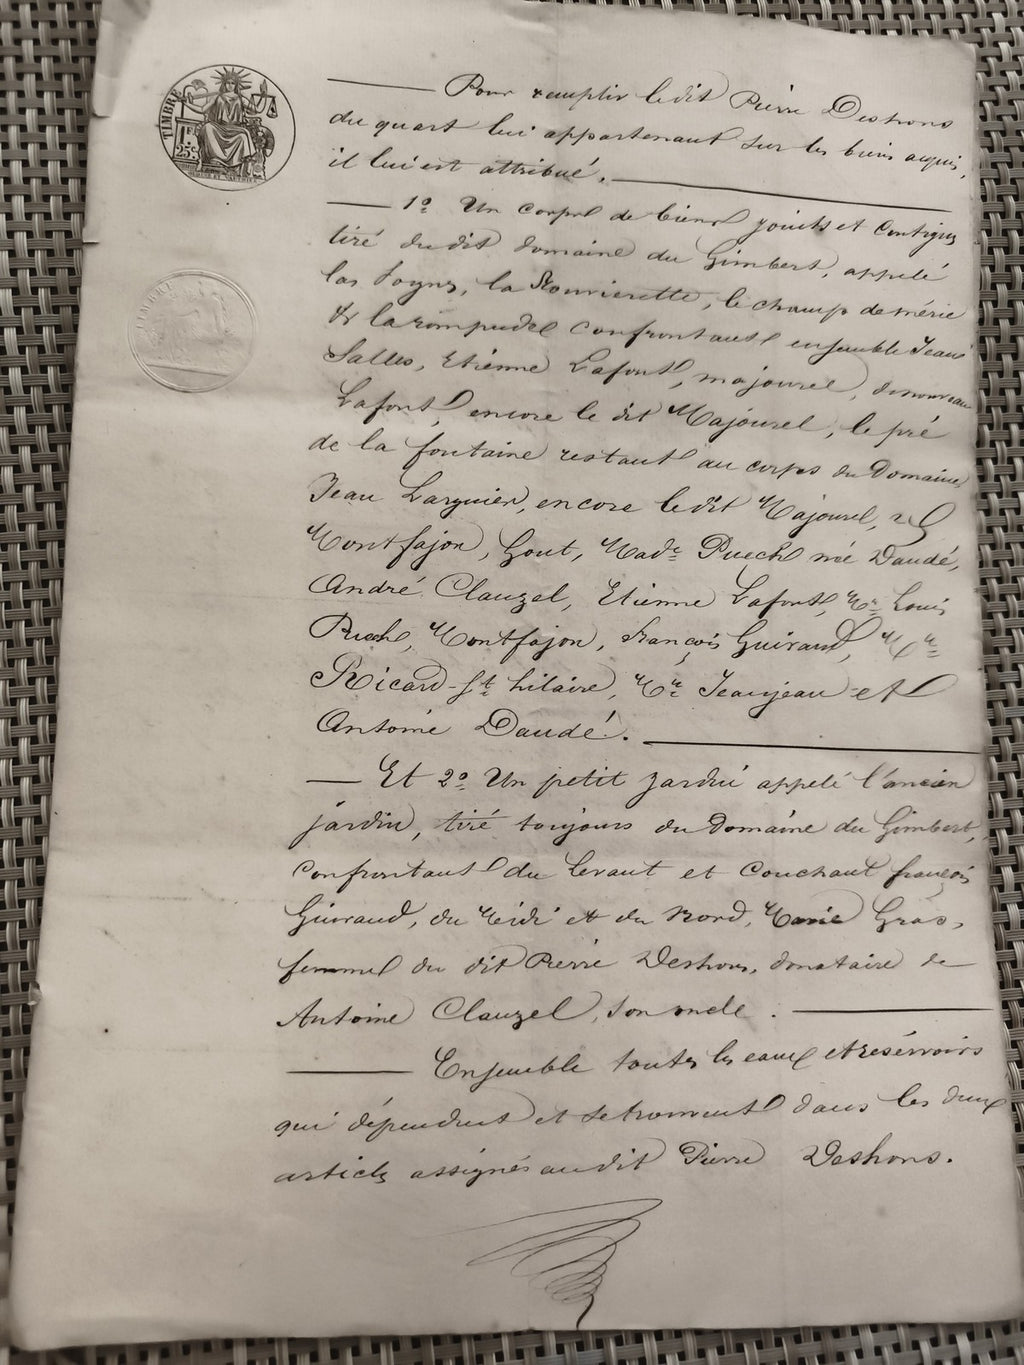 TIMBRE
1F
25c
Pour remplir ledit Pierre Deshons
du quart lui appartenant sur les biens acquis,
il lui est attribué.
1º Un corps de biens joints et contigus
tiré du dit domaine du Gimbert, appelé
las la Rouvierette, le champ de
& la rompude confrontant ensemble Jean
Salles, Etienne Lafont, majourel, denouveau
Lafont, encore le dit Majourel, le pré
de la fontaine restant au corps du Domaine
Jean Larguier, encore ledit Majourel,
Montfajon, Gout, Made Puech née Daudé,
André Clauzel, Etienne Lafont, Mr Louis
Puech, Montfajon, François Guiraud,
Ricard-St hilaire, Jeanjean et
Antoine Daudé.
Et 2º Un petit jardin appelé l'ancien
jardin, tiré toujours du Domaine du Gimbert,
confrontant du levant et couchant françois
Guiraud, du Midi et du Nord, Marie Gras,
femme du dit Pierre Deshons, donataire de
Antoine Clauzel, son oncle.
Ensemble toutes les eaux et réservoirs
qui dépendent et se trouvent dans les deux
articles assignés audit Pierre Deshons.